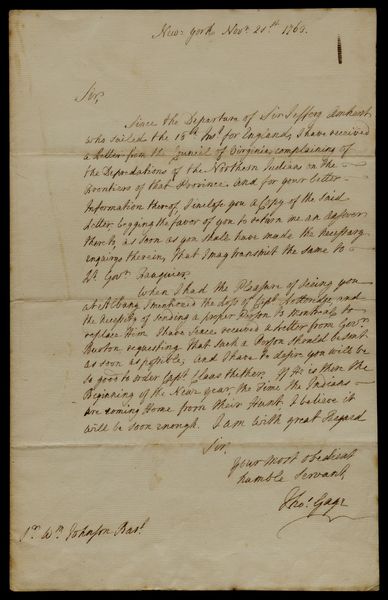 New York Novr. 21st. 1763.
Sir,
Since the Departure of Sir Jeffery Amherst,
who sailed the 18th Inst. for England, I have received
a Letter from the Council of Virginia, complaining of
the Depredations of the Northern Indians on the
Frontiers of that Province. And for your better
Information thereof, I enclose you a Copy of the said
Letter, begging the favor of you to return me an Answer
thereto, as soon as you shall have made the necessary
enquirys therein, that I may transmit the same to
Lt. Govr. Fauquier.
When I had the Pleasure of seeing you
at Albany, I mentioned the loss of Capt. and
the necessity of sending a proper Person to Montreal to
replace Him. I have since received a Letter from Govr.
Burton, requesting that such a Person should be sent
as soon as possible; And I have to desire you will be
so good to order Capt. Claus thither. If He is there the
Beginning of the New year, the Time the Indians
are coming Home from their Hunt, I believe it
will be soon enough. I am with great Regard
Sir,
your most obedient
humble Servant,
Thos. Gage
Sr. Wm. Johnson Bart.